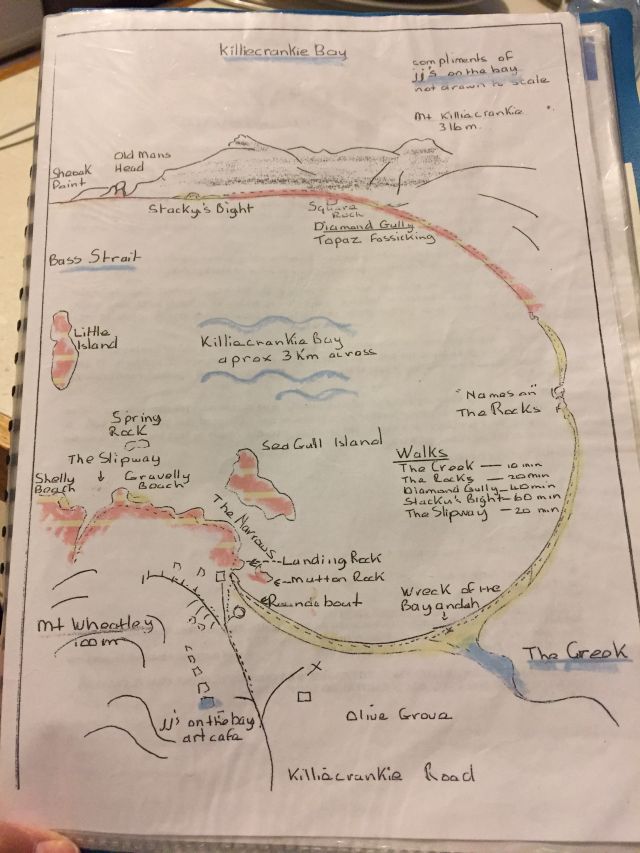 Killiecrankie Bay
compliments of
jj's on the bay
not drawn to scale
Mt Killiecrankie
316m.
Old Mans
Head
Shoak
Point
Stacky's Bight
Square
Rock
Diamond Gully
Topaz Fossicking
Bass Strait
Little
Island
Killiecrankie Bay
aprox 3 Km across
"Names on"
The Rocks
Spring
Rock
The Slipway
Shelly
Beach
Gravelly
Beach
Sea Gull Island
The Narrows
Walks
The Creek — 10 min
The Rocks — 20 min
Diamond Gully — 40 min
Stacky's Bight — 60 min
The Slipway — 20 min
Landing Rock
Mutton Rock
Roundabout
Wreck of the
Bayandah
The Creek
Mt Wheatley
100m
jj's on the bay
art cafe
Olive Grove
Killiecrankie Road